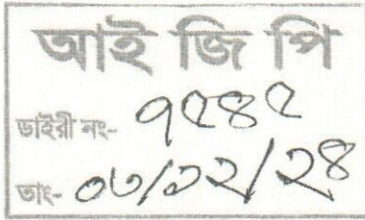 আই জি পি
ডাইরী নং- ৭৫৪৫
তাং- ০৩/১২/২৪